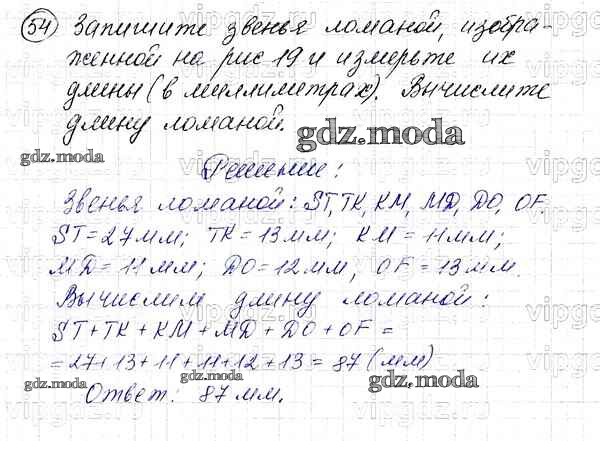 54 Запишите звенья ломаной, изобра-
женной на рис 19 и измерьте их
длины (в миллиметрах). Вычислите
длину ломаной.
gdz.moda
gdz.moda
Решение:
Звенья ломаной: ST, TK, KM, MD, DO, OF.
ST = 27 мм; TK = 13 мм; KM = 11 мм;
MD = 11 мм; DO = 12 мм, OF = 13 мм.
Вычислим длину ломаной:
ST + TK + KM + MD + DO + OF =
= 27 + 13 + 11 + 11 + 12 + 13 = 87 (мм)
gdz.moda
gdz.moda
gdz.moda
Ответ: 87 мм.